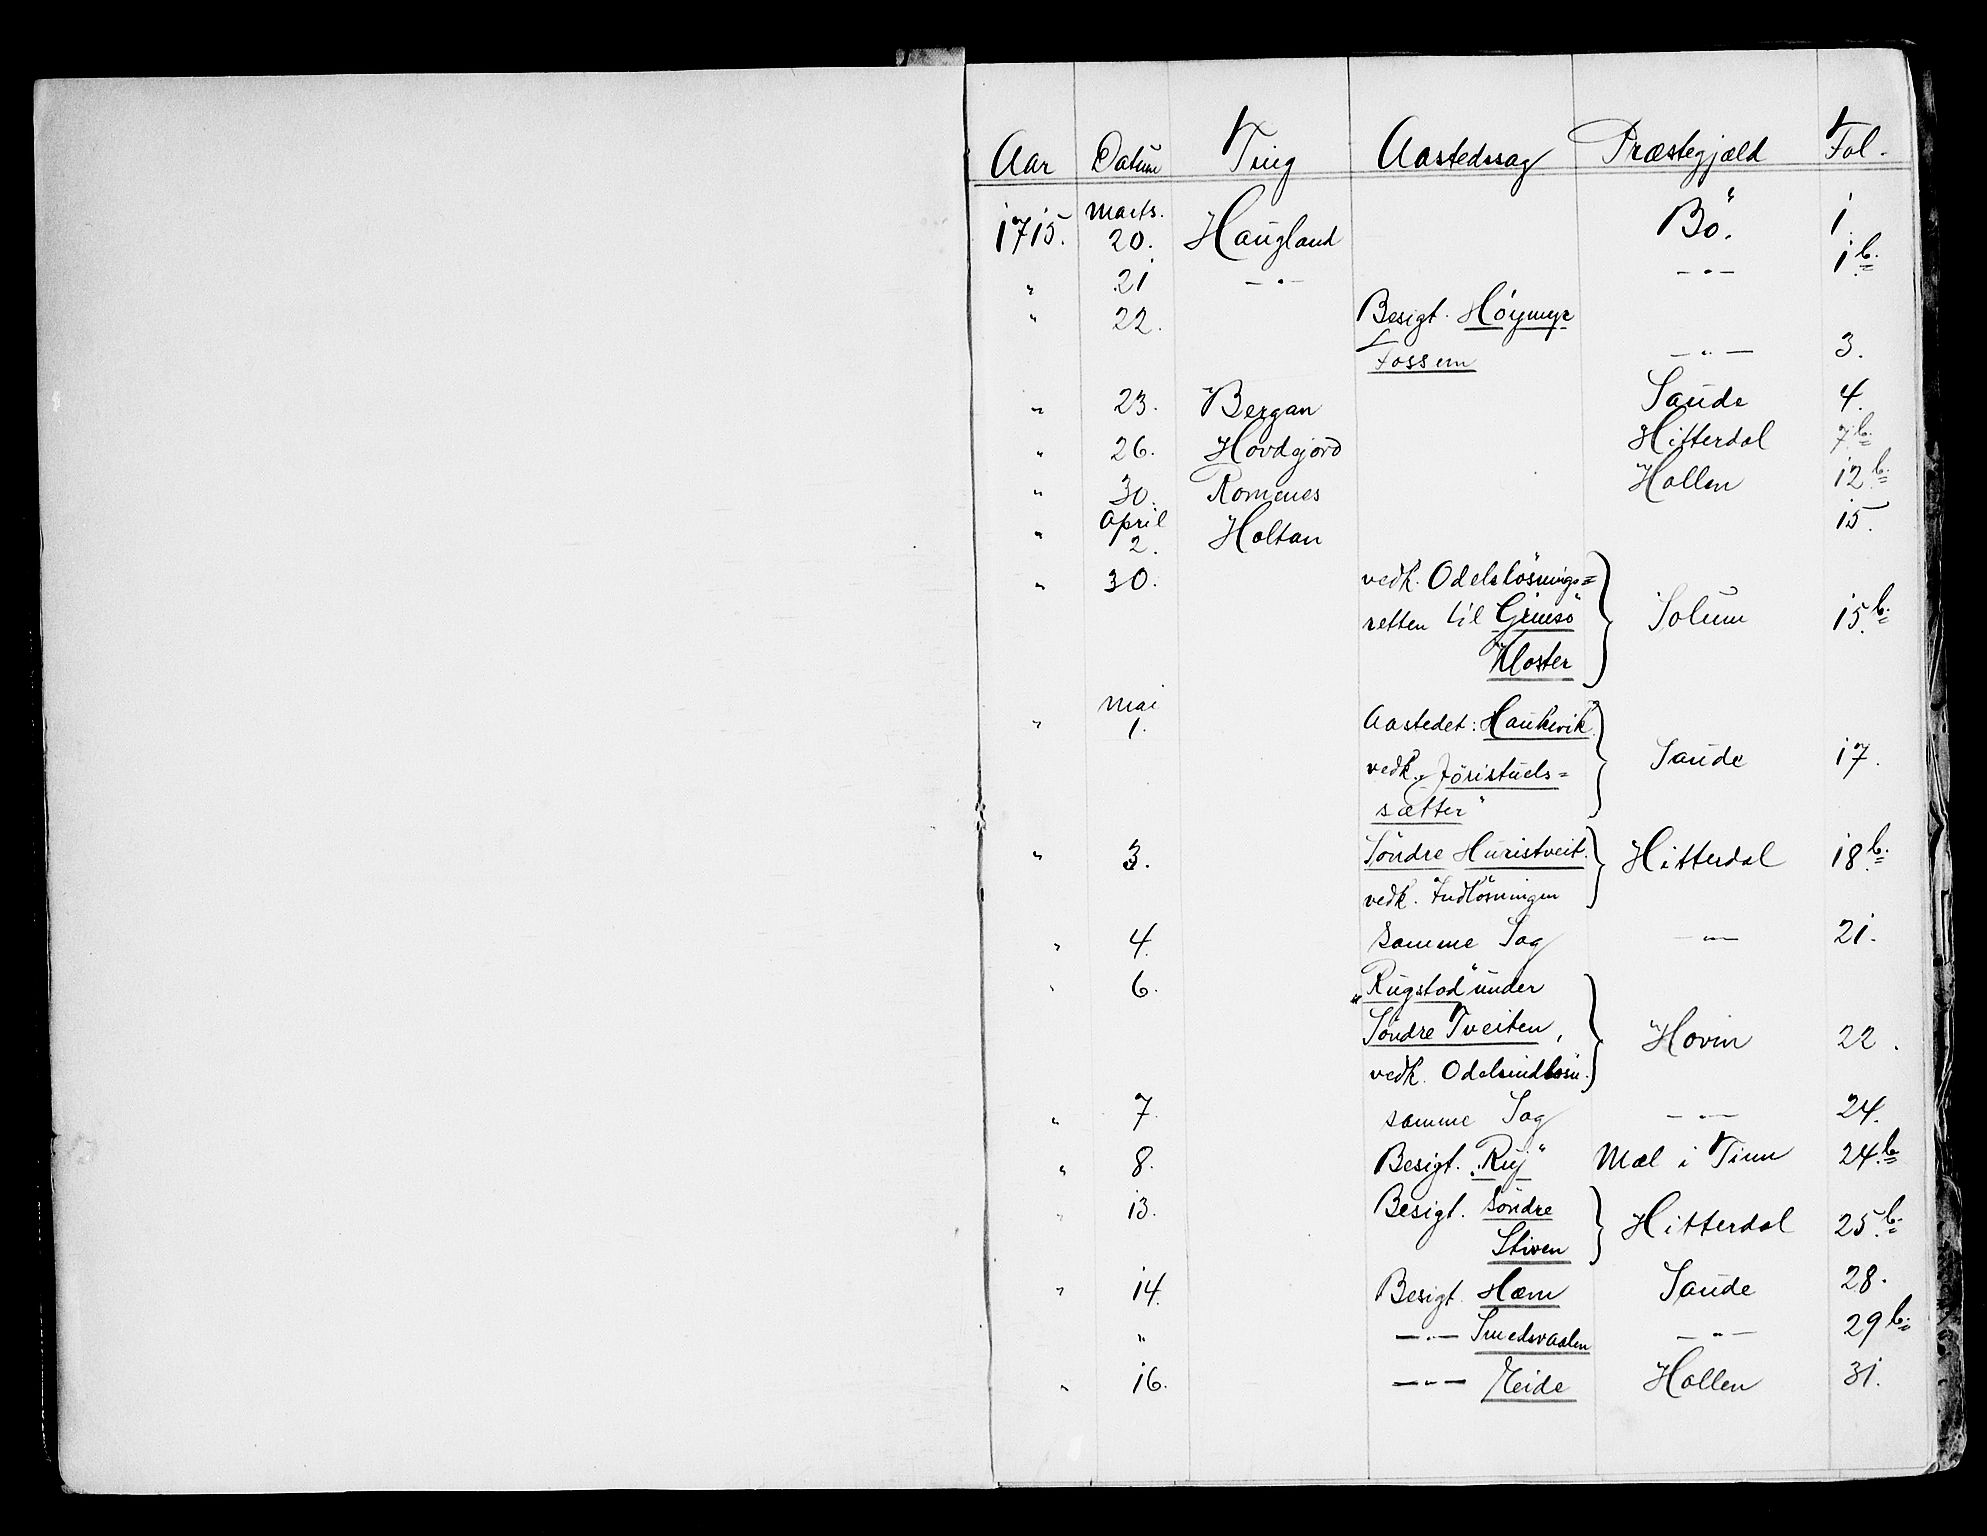 Aar Datum Ting Aastedssag Præstegjæld Fol.
1715. Marts. 20. Haugland Bö. 1.
" 21 -"- -"- 1 b.
" 22. Besigt. Höymyr
Fossem -"- 3.
" 23. Bergan Saude 4.
" 26. Hovdgjord Hitterdal 7 b.
" 30. Romenes Hollen 12 b.
" April 2. Holtan 15.
" 30. vedk. Odelslösnings=
retten til Gimsö Solum 15 b.
Kloster
" Mai 1. Aastedet: Haukvik
vedk. „Jöristuels= Saude 17.
sætter"
" 3. Söndre Huristveit. Hitterdal 18 b.
vedk. Indlösningen
" 4. Samme Sag -"- 21.
" 6. „Rugstad" under
Söndre Tveiten, Hovin 22.
vedk. Odelsindlösn.
" 7. samme Sag -"- 24.
" 8. Besigt. „Ruj" Mæl i Tinn 24 b.
" 13. Besigt. Söndre Hitterdal 25 b.
Stiven
" 14. Besigt. Hæm Saude 28.
" -"- Smedsvaalen -"- 29 b.
" 16. -"- Eeide Hollen 31.